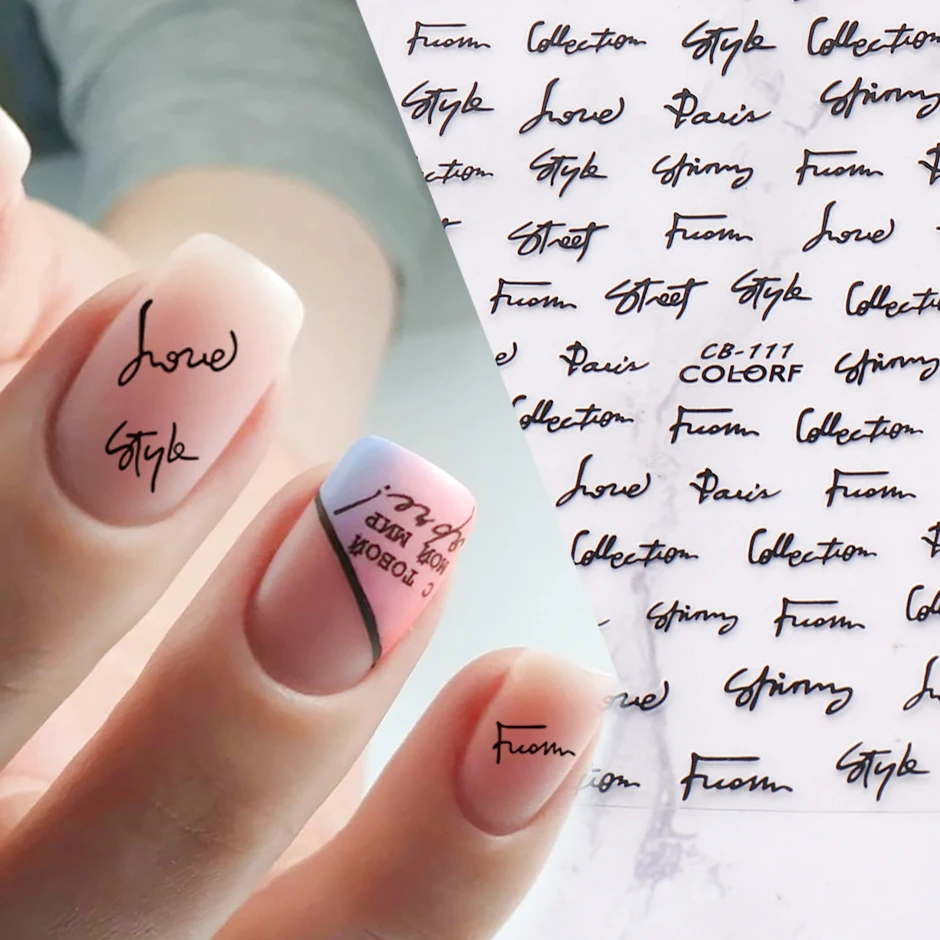 From Collection Style Collection
Style Love Paris Spring
ction Style Spring From
Street From Love
From Street Style Collecti
e Paris CB-111 Spring
COLORF
Collection From Collection
Love Paris From
Collection Collection
Spring From Col
ove Spring
ion From Style
Love
Style
С ТОБОЙ
МОЙ МИР
ярче!
From